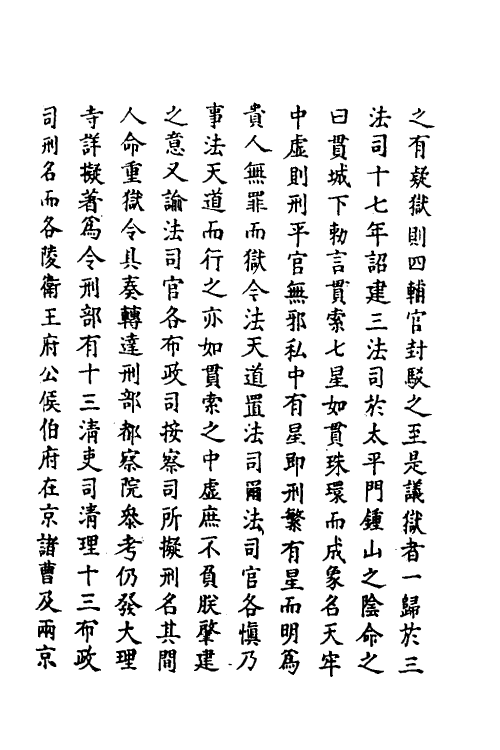 之有疑獄則四輔官封駁之至是議獄者一歸於三
法司十七年詔建三法司於太平門鍾山之陰命之
曰貫城下勅言貫索七星如貫珠環而成象名天牢
中虛則刑平官無邪私中有星即刑繁有星而明為
貴人無罪而獄今法天道置法司爾法司官各慎乃
事法天道而行之亦如貫索之中虛庶不負朕肇建
之意又諭法司官各布政司按察司所擬刑名其間
人命重獄令具奏轉達刑部都察院叅考仍發大理
寺詳擬著爲令刑部有十三清吏司清理十三布政
司刑名而各陵衛王府公侯伯府在京諸曹及兩京